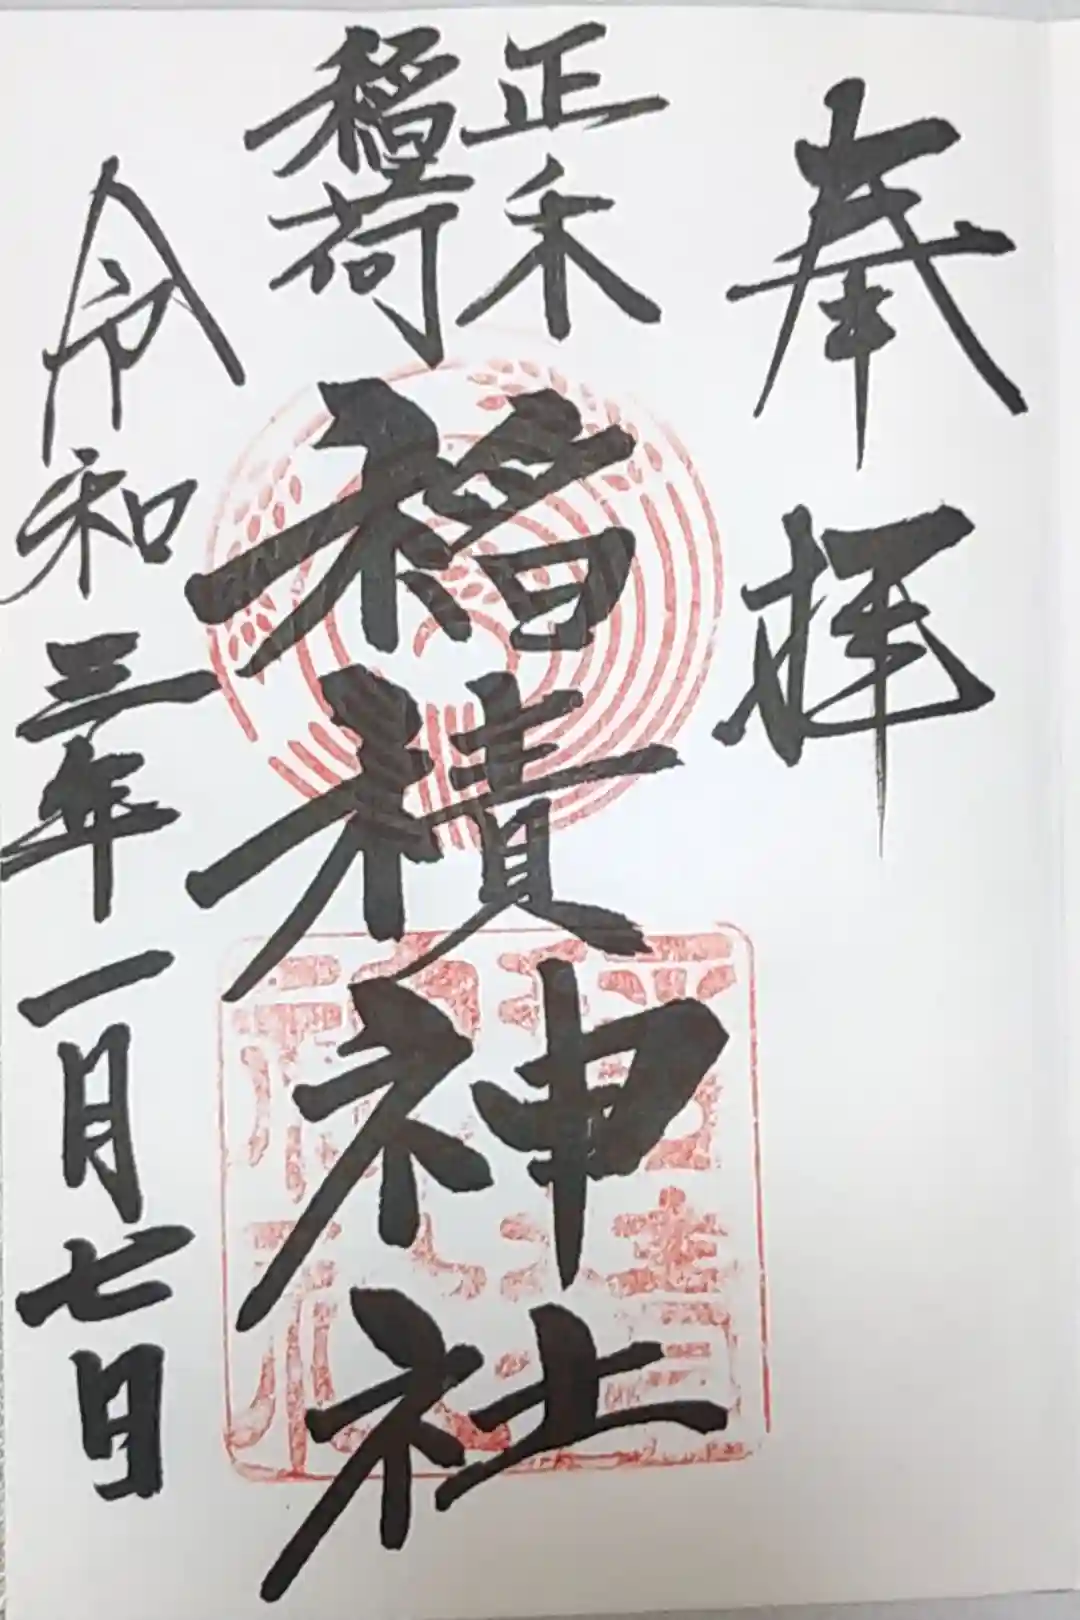 奉拝
正ノ木
稲荷
稲積神社
令和三年一月七日